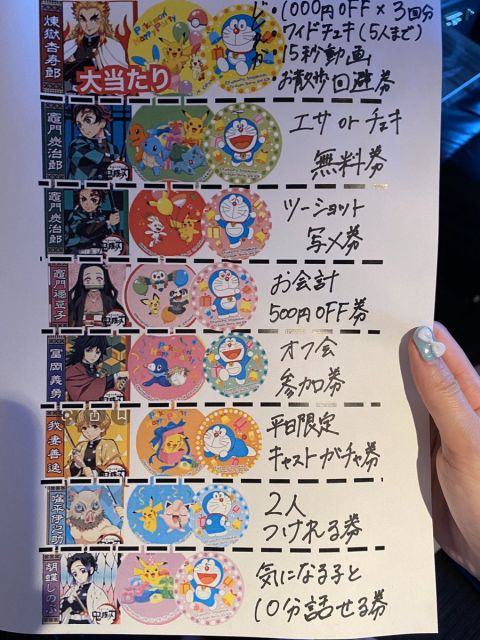 煉獄杏寿郎
大当たり
・1000円OFF×3回分
・ワイドチェキ(5人まで)
・15秒動画
お散歩回避券
竈門炭治郎
エサ or チェキ
無料券
竈門炭治郎
ツーショット
写メ券
竈門禰豆子
お会計
500円OFF券
冨岡義勇
オフ会
参加券
我妻善逸
平日限定
キャストガチャ券
嘴平伊之助
2人
つけれる券
胡蝶しのぶ
気になる子と
10分話せる券